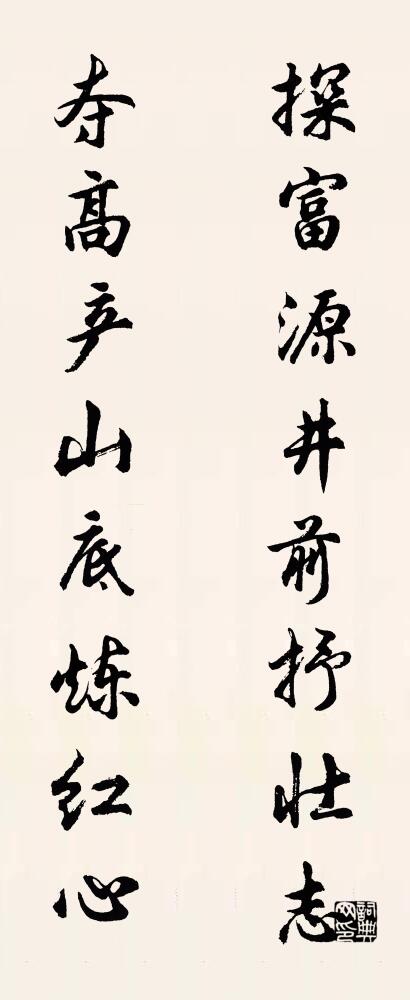 探富源井前抒壮志
夺高产山底炼红心
词典网印